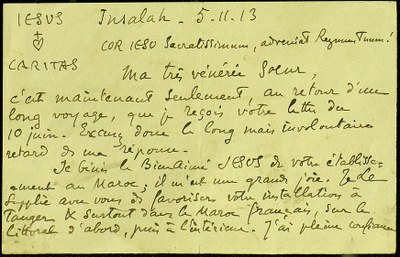 IESUS
CARITAS
Insalah - 5.11.13
COR IESU Sacratissimum, adveniat Regnum Tuum!
Ma très vénérée Soeur,
c'est maintenant seulement, au retour d'un
long voyage, que je reçois votre lettre du
10 juin. Excusez donc le long mais involontaire
retard de ma réponse.
Je bénis le BienAimé JESUS de votre établisse-
-ment au Maroc; il m'est une grande joie. Je Le
supplie avec vous de favoriser votre installation à
Tanger & surtout dans le Maroc français, sur le
littoral d'abord, puis à l'intérieur. J'ai pleine confiance